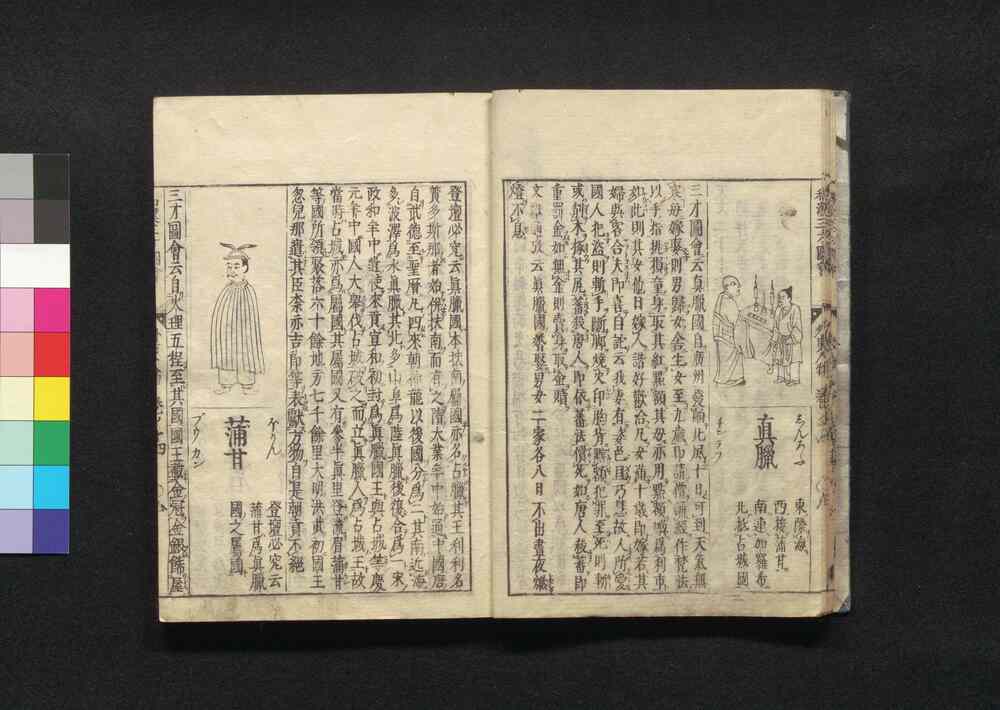 眞臘
しんろう
チンラフ
東際海
西接蒲甘
南連加羅希
北抵占城國
三才圖會云眞臘國自廣州發舶北風十日可到天氣無
寒毎嫁娶則男歸女舍生女至九歳即請僧誦經作梵法
以手指挑損童身取其紅點額其母亦用點額喚爲利市
如此則其女他日嫁人諧好歡洽凡女滿十歳即嫁若其
婦與客合夫即喜自詑云我妻有姿色且巧慧故人所愛
國人犯盗則斬手斷脚燒火印胸背黥額犯罪至死則斬
或鈍木椓其尻蕃殺唐人即依蕃法償死如唐人殺蕃即
重罰金如無金則賣身取金贖
文云眞臘國婚娶男女二家各八日不出晝夜燃
燈不息
登壇必究云眞臘國本扶南屬國亦名占臘其王刹利名
質多斯那者始併扶南而有之隋大業年中始通中國唐
自武德至聖暦凡四來朝神龍以後國分爲二其南近海
多波澤爲水眞臘其北多山阜爲陸眞臘後復合爲一宋
政和年中遣使來貢宣和初封爲眞臘國王與占城等慶
元年中國人大舉伐占城破之而立眞臘人爲占城王故
當時占城亦爲屬國其屬國又有參半眞里登流眉蒲甘
等國所領聚落六十餘地方七千餘里大明洪武初國王
忽兒那遣其臣柰亦吉郎等表獻方物自是朝貢不絶
蒲甘
ほかん
プウカン
登壇必究云
蒲甘爲眞臘
國之屬國
三才圖會云自大理五程至其國國王戴金冠金銀餙屋